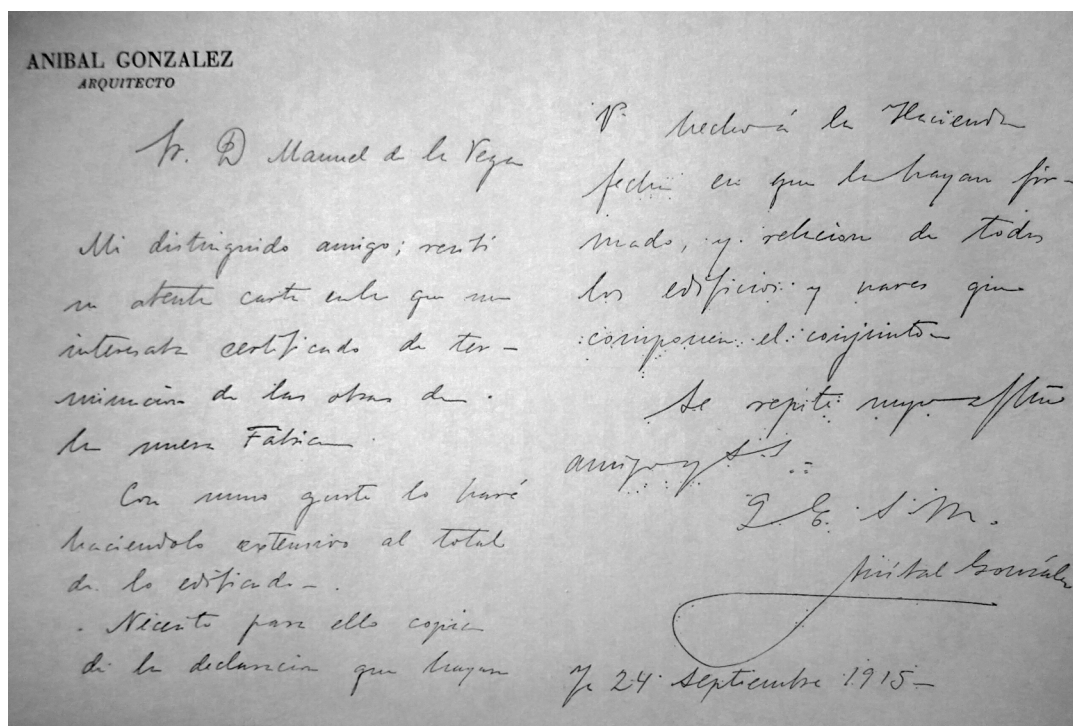 ANIBAL GONZALEZ
ARQUITECTO
Sr. D Manuel de la Vega
Mi distinguido amigo; recibí
su atenta carta en la que me
interesaba certificado de ter-
minación de las obras de
la nueva Fábrica
Con sumo gusto lo haré
haciendolo extensivo al total
de lo edificado-.
Necesito para ello copia
de la declaración que hayan
Vs. hecho á la Hacienda
fecha en que la hayan fir-
mado, y relacion de todos
los edificios y naves que
componen el conjunto
Se repite suyo affmo
amigo y S.S.
Q. E. S. M.
Aníbal González
24 Septiembre 1915-